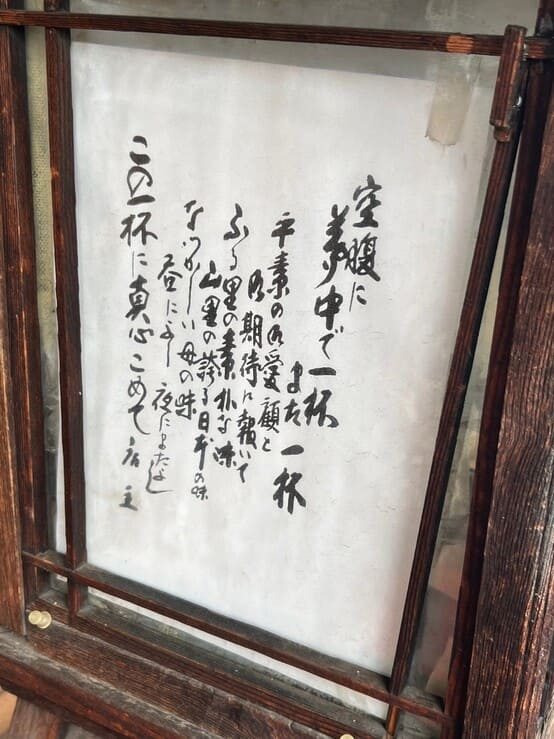 空腹に
夢中で一杯
また一杯
平素の御愛顧と
御期待に報いて
ふる里の素朴な味
山里の誇る日本の味
なつかしい母の味
昼によし夜にまたよし
この一杯に真心こめて 店主